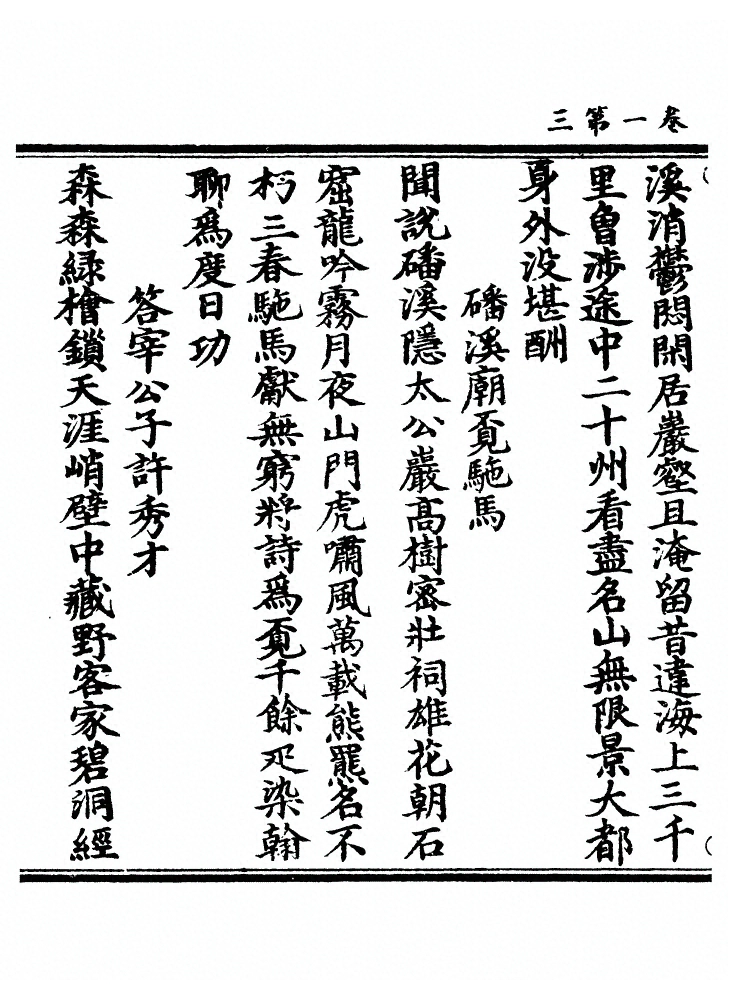 卷一第三
溪消鬱悶閑居巖壑且淹留昔違海上三千
里曾涉途中二十州看盡名山無限景大都
身外没堪酬
磻溪廟覔駞馬
聞說磻溪隱太公巖高樹密壯祠雄花朝石
窟龍吟霧月夜山門虎嘯風萬載熊羆名不
朽三春駞馬獻無窮將詩爲覔千餘疋染翰
聊爲度日功
答宰公子許秀才
森森緑檜鎖天涯峭壁中藏野客家碧洞經